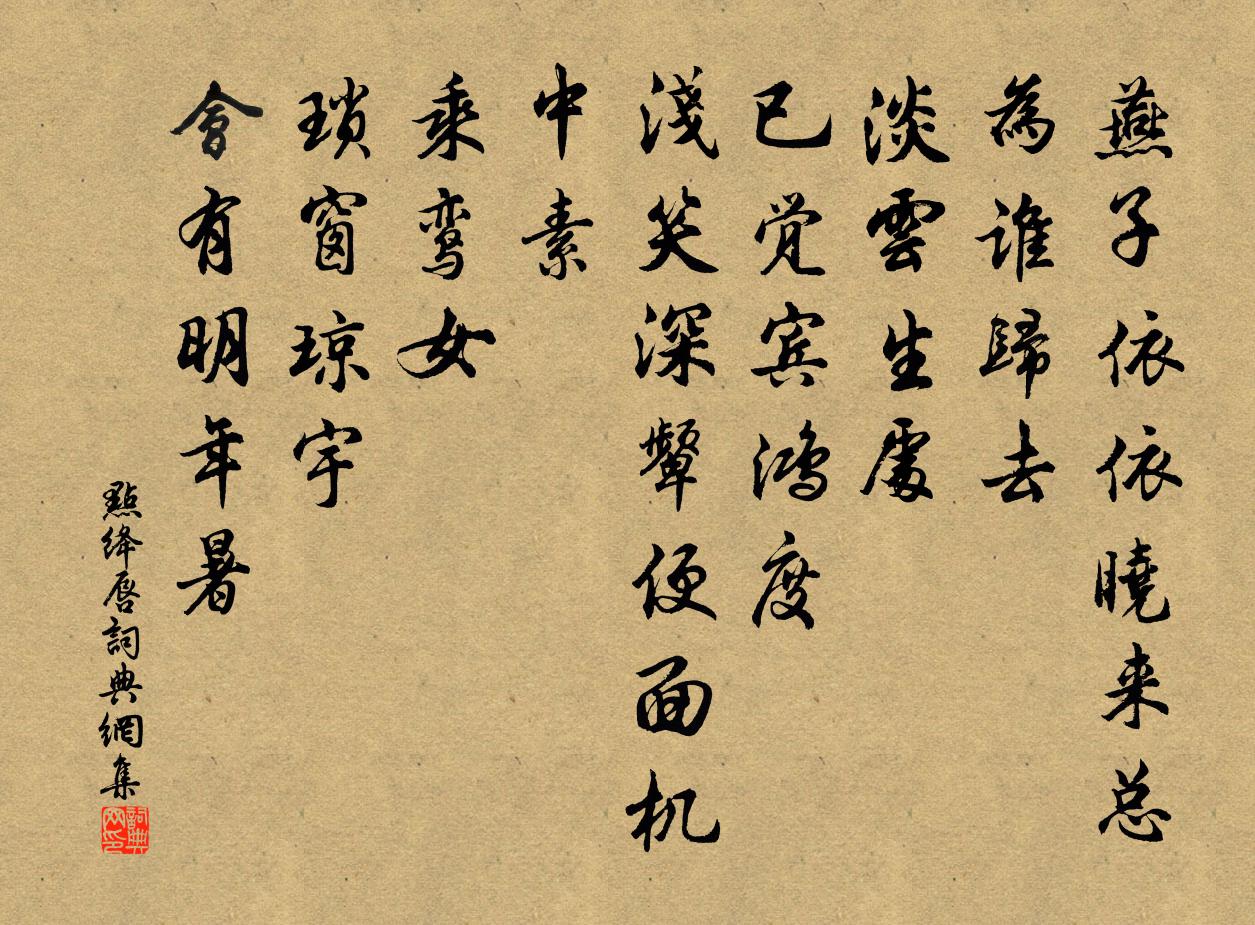 燕子依依晓来总
為谁歸去
淡雲生處
已觉宾鸿度
淺笑深颦便面机
中素
乘鸾女
琐窗琼宇
會有明年暑
點绛唇詞典網集
詞典网印